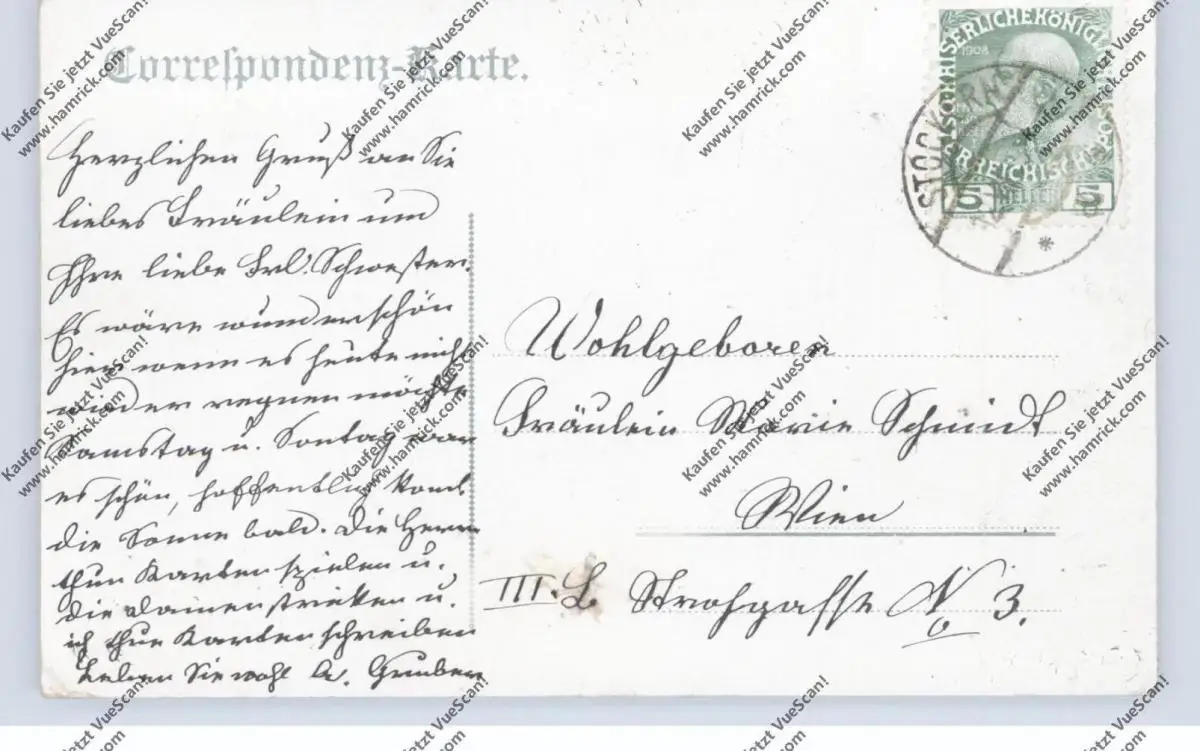 Correspondenz-Karte.
Herzlichen Gruß an Sie
liebes Fräulein und
Ihre liebe Frl. Schwester.
Es wäre wunderschön
hier, wenn es heute nicht
wieder regnen möchte
Samstag u. Sontag war
es schön, hoffentlich komt
die Sonne bald. Die Herrn
thun Karten spielen u.
die Damen stricken u.
ich thue Karten schreiben
Leben Sie wohl A. Gruber
Wohlgeboren
Fräulein Marie Schmidt
Wien
III. B. Strohgasse No 3.
KAISERLICHEKÖNIGL
1908
ÖSTERREICHISCHE POST
5 HELLER 5
STOCKERN
Kaufen Sie jetzt VueScan!
www.hamrick.com